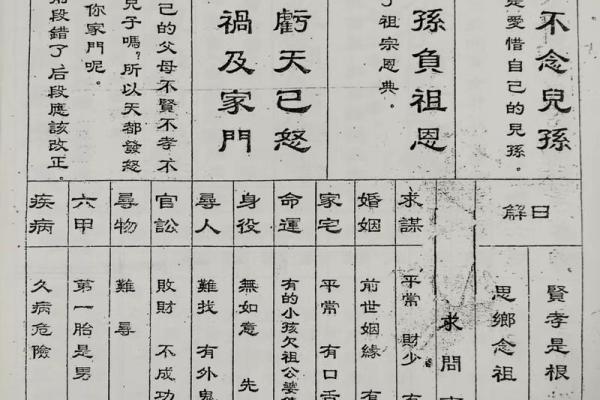 不念兒孫
是愛惜自己的兒孫。
孫負祖恩
祖宗恩典。
虧天已怒
禍及家門
己的父母不賢不孝不
兒子嗎?所以天都發怒
你家門呢。
段錯了后段應該改正。
日解
賢孝是根
思鄉念祖
求問
求謀 平常 財少 有
婚姻 前世姻緣 有
家宅 平常 有口舌
命運 有的小孩欠祖公婆
身役 無如意 先
尋人 難找 有外鬼
官訟 敗財 不成功
尋物 難尋
六甲 第一胎是男
疾病 久病危險